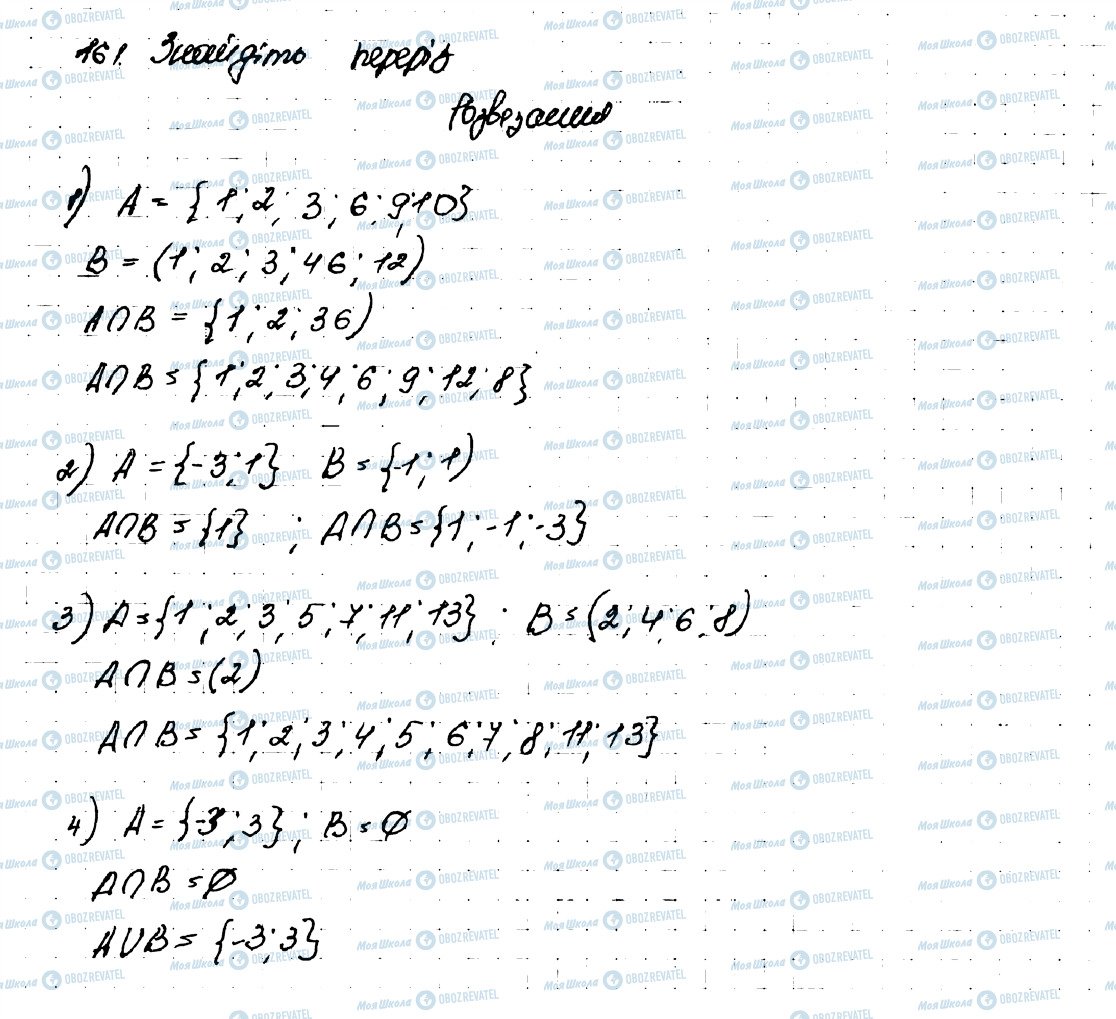 161. Знайдіть переріз
Розвезання
1) A = {1; 2; 3; 6; 9;10}
B = (1; 2; 3; 46; 12)
A∩B = {1; 2; 36)
A∩B = {1; 2; 3; 4; 6; 9; 12; 8}
2) A = {-3; 1} B = {-1; 1)
A∩B = {1} ; A∩B = {1; -1; -3}
3) A = {1; 2; 3; 5; 7; 11; 13} ; B = (2; 4; 6; 8)
A∩B = (2)
A∩B = {1; 2; 3; 4; 5; 6; 7; 8; 11; 13}
4) A = {-3; 3}; B = ∅
A∩B = ∅
A∪B = {-3; 3}